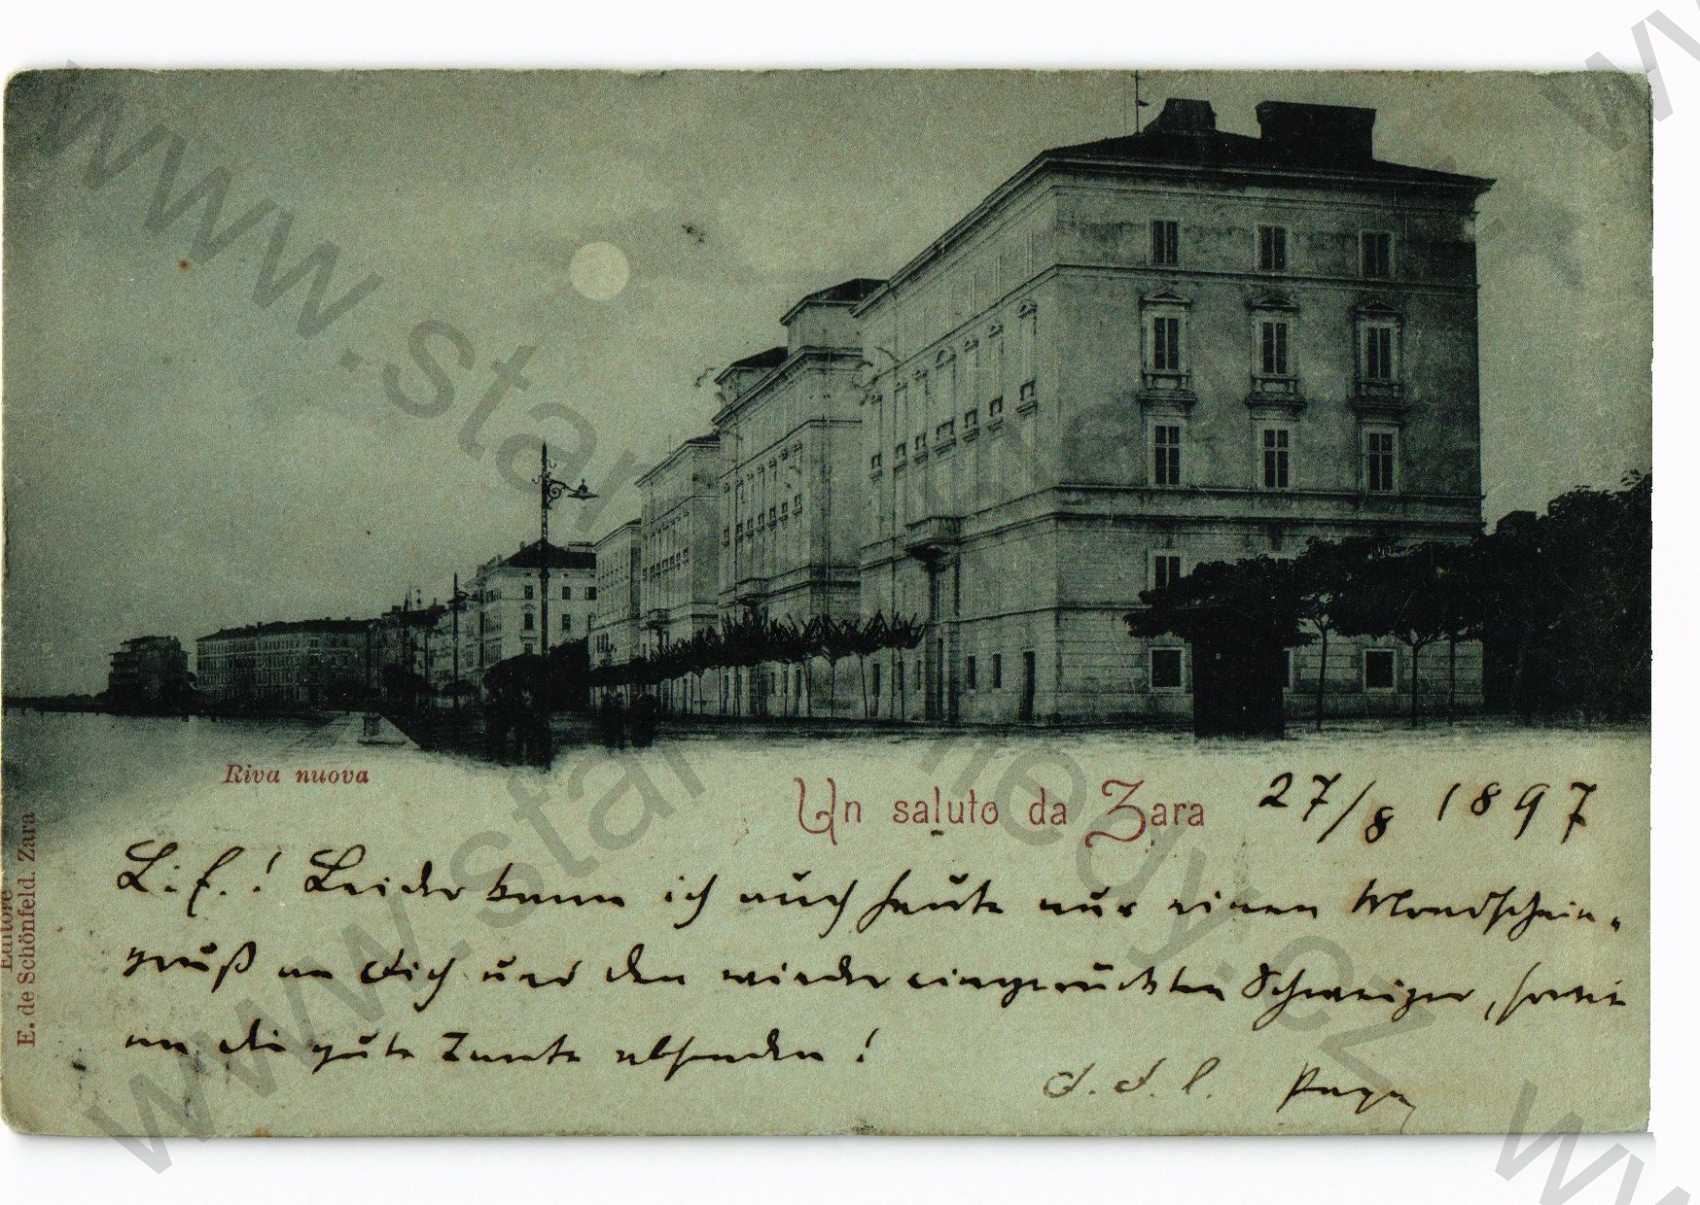 Riva nuova
Un saluto da Zara
27/8 1897
L. E.! Leider kann ich auch heute nur einen Mondschein-
gruß an Dich und den wieder eingerückten Schweizer, sowie
an die gute Tante absenden!
D. D. l. Papa
Editore
E. de Schönfeld. Zara